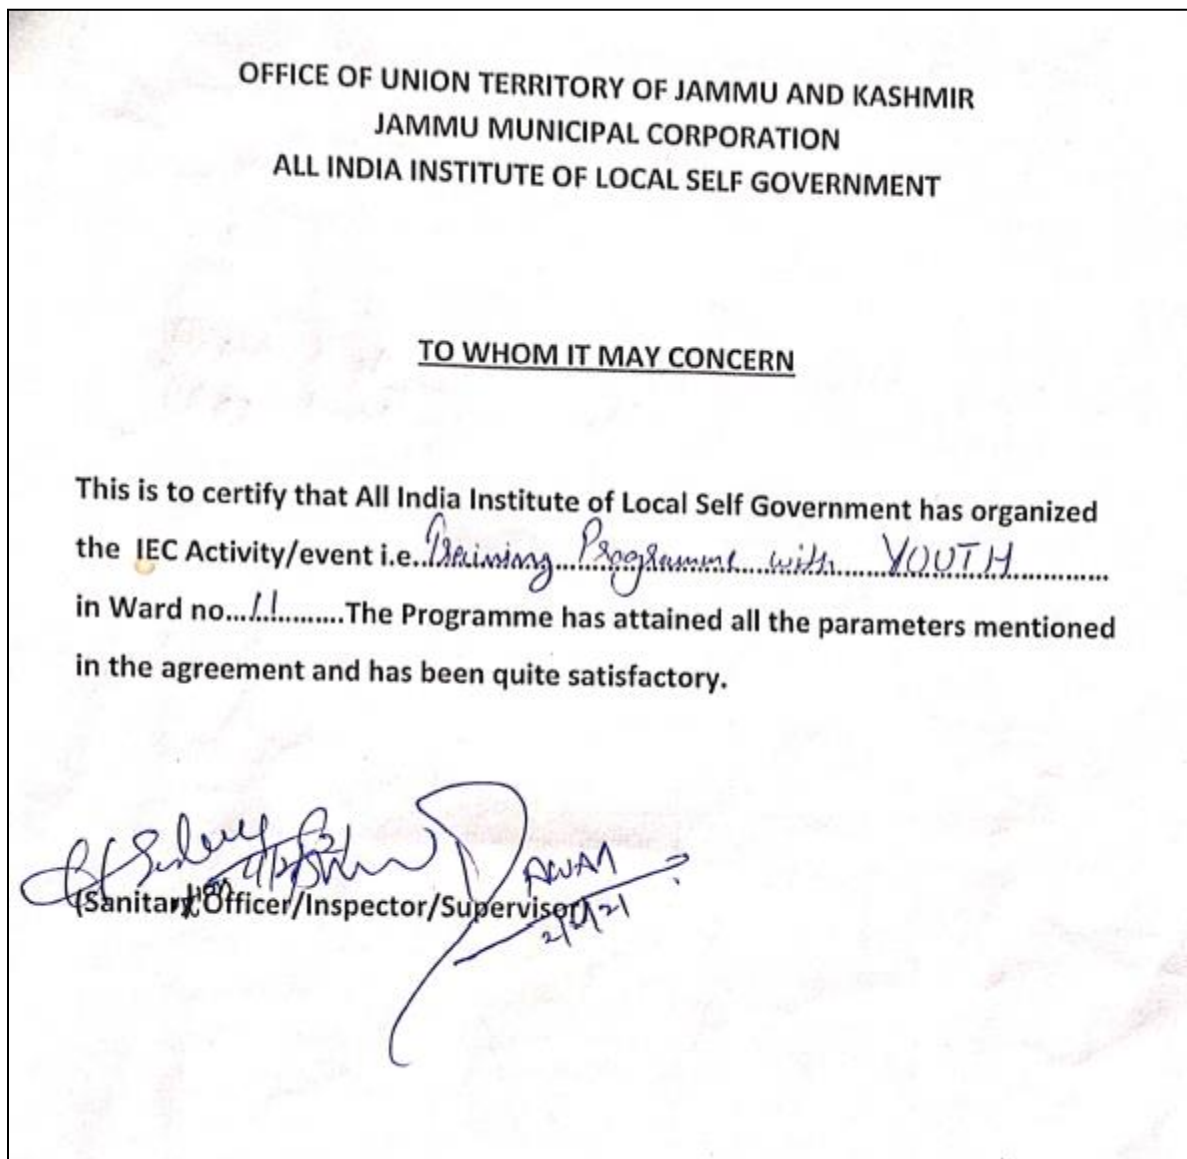 OFFICE OF UNION TERRITORY OF JAMMU AND KASHMIR
JAMMU MUNICIPAL CORPORATION
ALL INDIA INSTITUTE OF LOCAL SELF GOVERNMENT
TO WHOM IT MAY CONCERN
This is to certify that All India Institute of Local Self Government has organized
the IEC Activity/event i.e..Training Programme with YOUTH
in Ward no...11..........The Programme has attained all the parameters mentioned
in the agreement and has been quite satisfactory.
(Sanitary Officer/Inspector/Supervisor)